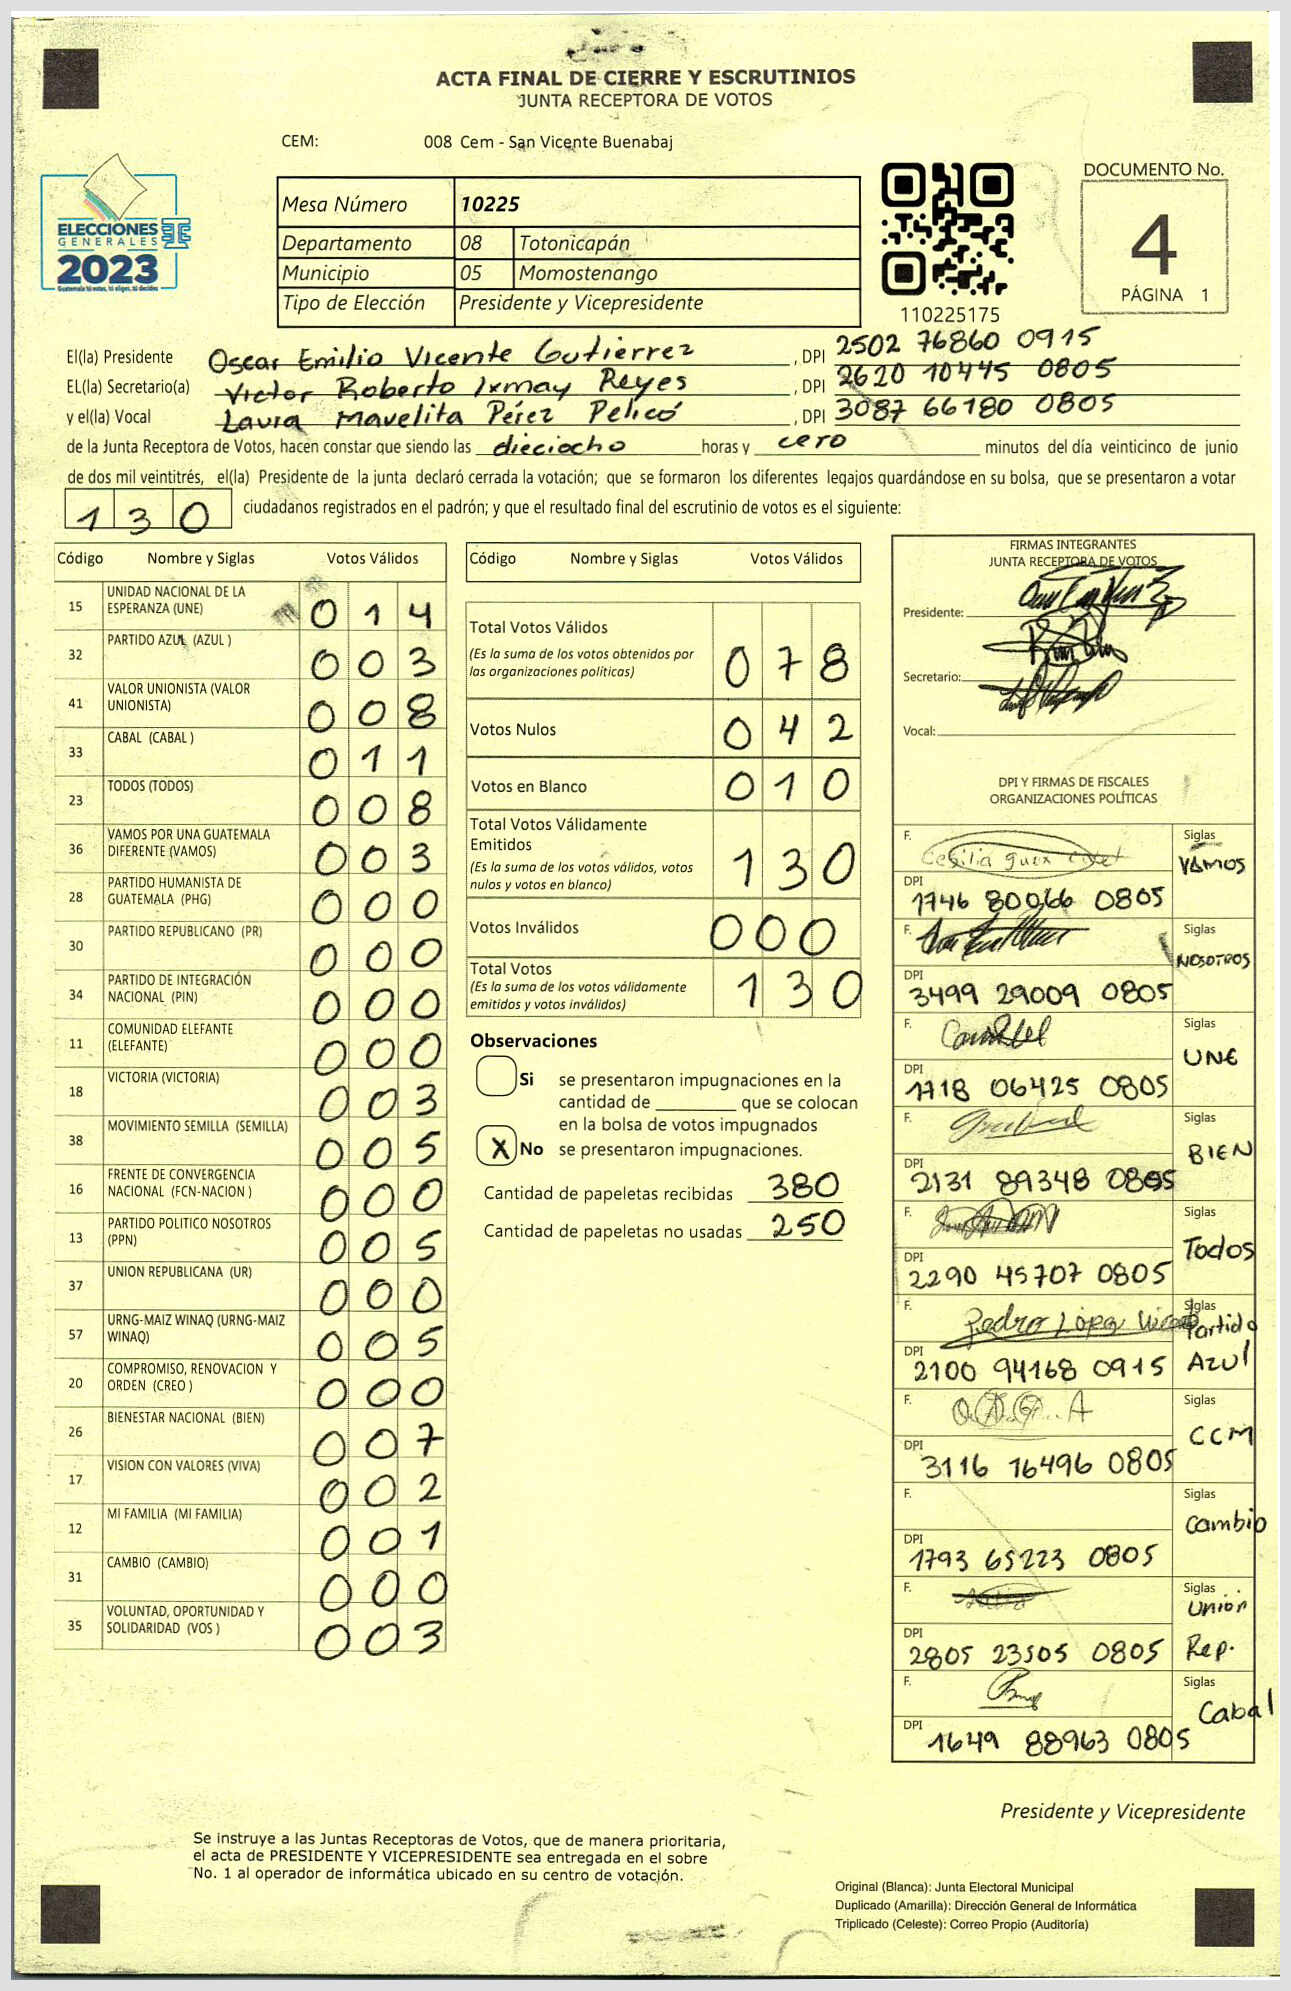 ACTA FINAL DE CIERRE Y ESCRUTINIOS
JUNTA RECEPTORA DE VOTOS
CEM: 008 Cem - San Vicente Buenabaj
ELECCIONES
GENERALES
2023
Guatemala tú votas, tú eliges, tú decides
Mesa Número 10225
Departamento 08 Totonicapán
Municipio 05 Momostenango
Tipo de Elección Presidente y Vicepresidente
110225175
DOCUMENTO No.
4
PÁGINA 1
El(la) Presidente Oscar Emilio Vicente Gutierrez , DPI 2502 76860 0915
EL(la) Secretario(a) Victor Roberto Ixmay Reyes , DPI 2620 10445 0805
y el(la) Vocal Laura Mavelita Pérez Pelicó , DPI 3087 66180 0805
de la Junta Receptora de Votos, hacen constar que siendo las dieciocho horas y cero minutos del día veinticinco de junio
de dos mil veintitrés, el(la) Presidente de la junta declaró cerrada la votación; que se formaron los diferentes legajos quardándose en su bolsa, que se presentaron a votar
130 ciudadanos registrados en el padrón; y que el resultado final del escrutinio de votos es el siguiente:
Código Nombre y Siglas Votos Válidos
15 UNIDAD NACIONAL DE LA
ESPERANZA (UNE) 014
32 PARTIDO AZUL (AZUL ) 003
41 VALOR UNIONISTA (VALOR
UNIONISTA) 008
33 CABAL (CABAL ) 011
23 TODOS (TODOS) 008
36 VAMOS POR UNA GUATEMALA
DIFERENTE (VAMOS) 003
28 PARTIDO HUMANISTA DE
GUATEMALA (PHG) 000
30 PARTIDO REPUBLICANO (PR) 000
34 PARTIDO DE INTEGRACIÓN
NACIONAL (PIN) 000
11 COMUNIDAD ELEFANTE
(ELEFANTE) 000
18 VICTORIA (VICTORIA) 003
38 MOVIMIENTO SEMILLA (SEMILLA) 005
16 FRENTE DE CONVERGENCIA
NACIONAL (FCN-NACION ) 000
13 PARTIDO POLITICO NOSOTROS
(PPN) 005
37 UNION REPUBLICANA (UR) 000
57 URNG-MAIZ WINAQ (URNG-MAIZ
WINAQ) 005
20 COMPROMISO, RENOVACION Y
ORDEN (CREO ) 000
26 BIENESTAR NACIONAL (BIEN) 007
17 VISION CON VALORES (VIVA) 002
12 MI FAMILIA (MI FAMILIA) 001
31 CAMBIO (CAMBIO) 000
35 VOLUNTAD, OPORTUNIDAD Y
SOLIDARIDAD (VOS ) 003
Código Nombre y Siglas Votos Válidos
Total Votos Válidos
(Es la suma de los votos obtenidos por
las organizaciones políticas) 078
Votos Nulos 042
Votos en Blanco 010
Total Votos Válidamente
Emitidos
(Es la suma de los votos válidos, votos
nulos y votos en blanco) 130
Votos Inválidos 000
Total Votos
(Es la suma de los votos válidamente
emitidos y votos inválidos) 130
Observaciones
Si se presentaron impugnaciones en la
cantidad de que se colocan
en la bolsa de votos impugnados
X No se presentaron impugnaciones.
Cantidad de papeletas recibidas 380
Cantidad de papeletas no usadas 250
FIRMAS INTEGRANTES
JUNTA RECEPTORA DE VOTOS
Presidente:
Secretario:
Vocal:
DPI Y FIRMAS DE FISCALES
ORGANIZACIONES POLÍTICAS
F. Siglas
VAMOS
DPI
1746 80066 0805
F. Siglas
NOSOTROS
DPI
3499 29009 0805
F. Siglas
UNE
DPI
1718 06425 0805
F. Siglas
BIEN
DPI
2131 89348 0805
F. Siglas
Todos
DPI
2290 45707 0805
F. Pedro López Siglas
Partido
Azul
DPI
2100 94168 0915
F. Siglas
CCM
DPI
3116 16496 0805
F. Siglas
Cambio
DPI
1793 65223 0805
F. Siglas
Unión
Rep.
DPI
2805 23505 0805
F. Siglas
Cabal
DPI
1649 88963 0805
Presidente y Vicepresidente
Se instruye a las Juntas Receptoras de Votos, que de manera prioritaria,
el acta de PRESIDENTE Y VICEPRESIDENTE sea entregada en el sobre
No. 1 al operador de informática ubicado en su centro de votación.
Original (Blanca): Junta Electoral Municipal
Duplicado (Amarilla): Dirección General de Informática
Triplicado (Celeste): Correo Propio (Auditoría)